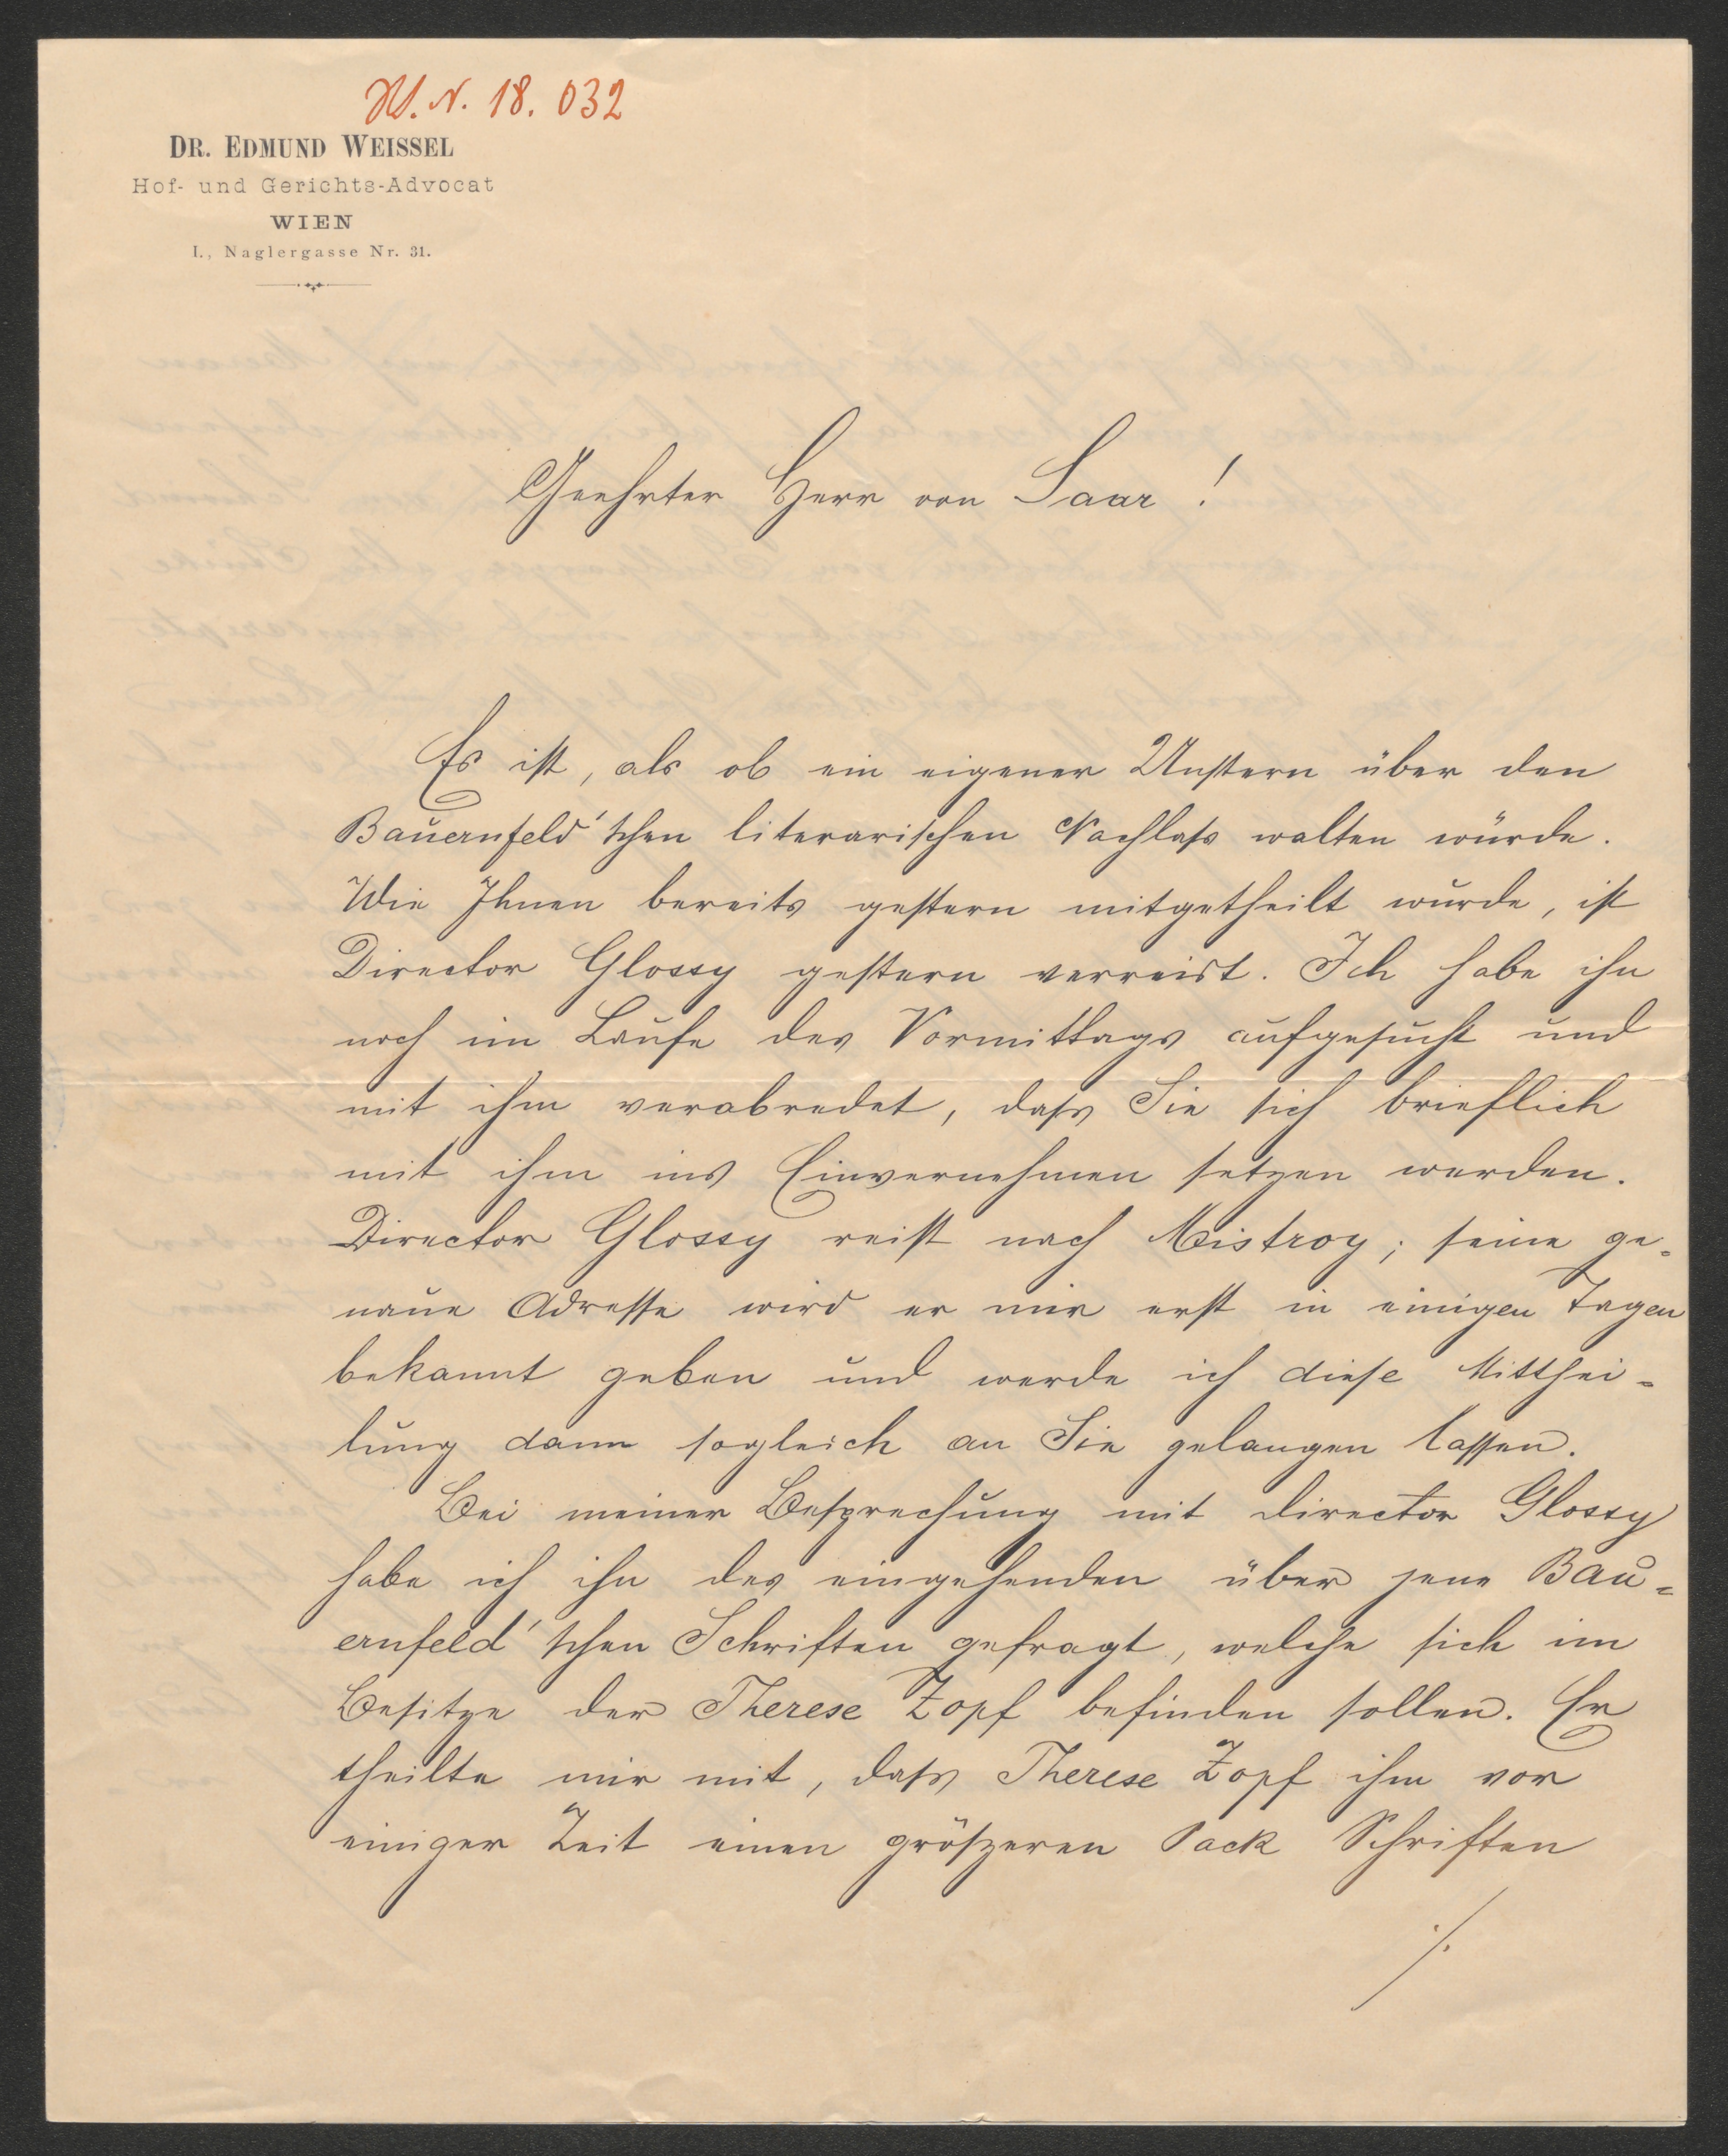 H. N. 18.032
DR. EDMUND WEISSEL
Hof- und Gerichts-Advocat
WIEN
I., Naglergasse Nr. 31.
Geehrter Herr von Saar !
Es ist, als ob ein eigener Unstern über den
Bauernfeld'schen literarischen Nachlass walten würde.
Wie Ihnen bereits gestern mitgetheilt wurde, ist
Director Glossy gestern verreist. Ich habe ihn
noch im Laufe des Vormittags aufgesucht und
mit ihm verabredet, dass Sie sich brieflich
mit ihm ins Einvernehmen setzen werden.
Director Glossy reist nach Mistroy; seine ge-
naue Adresse wird er mir erst in einigen Tagen
bekannt geben und werde ich diese Mitthei-
lung dann sogleich an Sie gelangen lassen.
Bei meiner Besprechung mit Director Glossy
habe ich ihn des eingehenden über jene Bau-
ernfeld'schen Schriften gefragt, welche sich im
Besitze der Therese Zopf befinden sollen. Er
theilte mir mit, dass Therese Zopf ihm vor
einiger Zeit einen grösseren Pack Schriften
./.